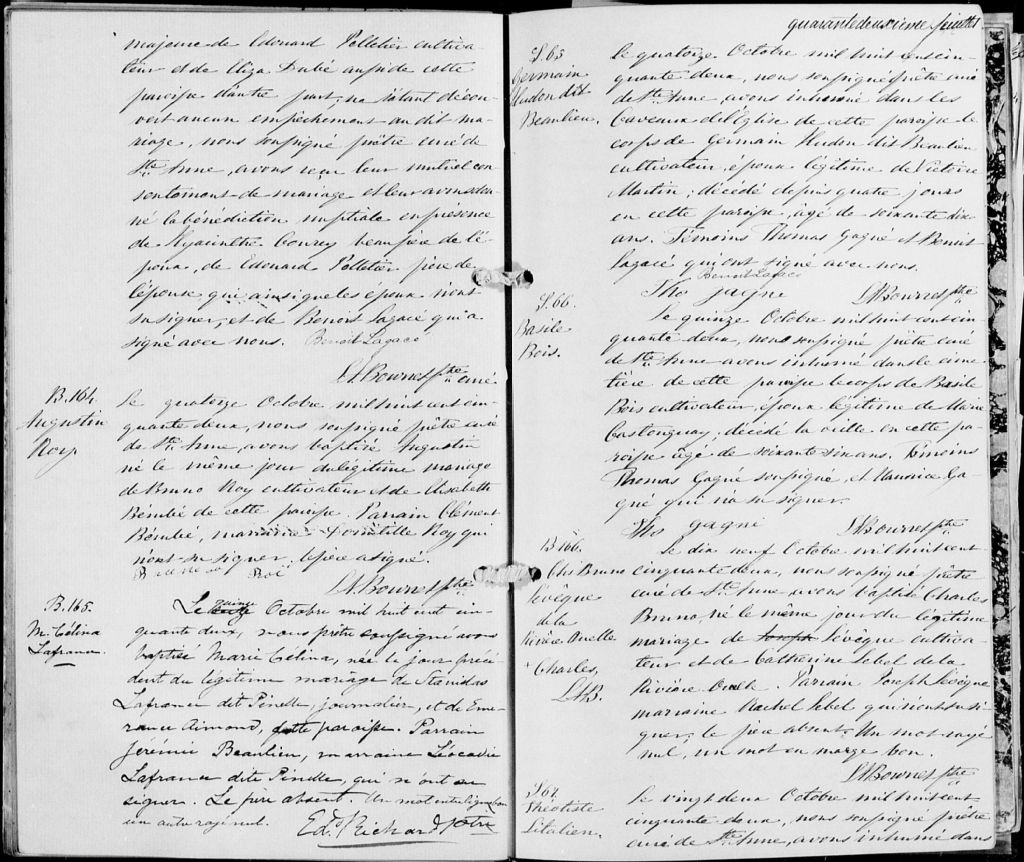 majeure de Edouard Pelletier cultiva-
teur et de Eliza Dubé aussi de cette
paroisse d'autre part, ne s'étant décou-
vert aucun empêchement au dit ma-
riage, nous soussigné prêtre curé de
Ste Anne, avons reçu leur mutuel con-
sentement de mariage et leur avons don-
né la bénédiction nuptiale en présence
de Hyacinthe beaufrère de l'é-
poux, de Edouard Pelletier père de
l'épouse qui ainsi que les époux n'ont
su signer, et de Benoit Lagacé qui a
signé avec nous. Benoit Lagacé
Ptre curé
B. 164.
Augustin
Roy.
Le quatorze Octobre mil huit cent cin-
quante deux, nous soussigné prêtre curé
de Ste Anne, avons baptisé Augustin
né le même jour du légitime mariage
de Bruno Roy cultivateur et de Elisabeth
Bérubé de cette paroisse. Parrain Clément
Bérubé, marraine Domitille Roy qui
n'ont su signer, le père a signé.
Ptre
B. 165.
M. Célina
Lafrance.
Le quinze Octobre mil huit cent cin-
quante deux, nous prêtre soussigné avons
baptisé Marie Célina, née le jour précé-
dent du légitime mariage de Stanislas
Lafrance dit Pinelle, journalier, et de Eme-
rance Aimond, de cette paroisse. Parrain
Jérémie Beaulieu, marraine Léocadie
Lafrance dite Pinelle, qui n'ont su
signer. Le père absent. Un mot interligne bon
un autre rayé nul.
Edd Richard Ptre
quarante deuxième feuillet
S. 65
Germain
Hudon dit
Beaulieu.
Le quatorze Octobre mil huit cent cin-
quante deux, nous soussigné prêtre curé
de Ste Anne, avons inhumé dans les
Caveaux de l'église de cette paroisse le
corps de Germain Hudon dit Beaulieu
cultivateur, époux légitime de Victoire
Martin; décédé depuis quatre jours
en cette paroisse, âgé de soixante dix
ans. Témoins Thomas Gagné et Benoit
Lagacé qui ont signé avec nous.
Benoit Lagacé
Tho gagne Ptre
S. 66.
Basile
Bois.
Le quinze Octobre mil huit cent cin-
quante deux, nous soussigné prêtre curé
de Ste Anne avons inhumé dans le cime-
tière de cette paroisse le corps de Basile
Bois cultivateur, époux légitime de Marie
Castonguay, décédé la veille en cette pa-
roisse âgé de soixante six ans. Témoins
Thomas Gagné soussigné, et Maurice Ga-
gné qui n'a su signer.
Tho gagné Ptre
B. 166.
Chs Bruno
Levêque
de la
Rivière Ouelle
+ Charles,
Le dix neuf Octobre mil huit cent
cinquante deux, nous soussigné prêtre
curé de Ste Anne avons baptisé Charles
Bruno, né le même jour du légitime
mariage de Joseph Levêque cultiva-
teur et de Catherine Lebel de la
Rivière Ouelle. Parrain Joseph Levêque
marraine Rachel Lebel qui n'ont su si-
gner, le père absent. Un mot rayé
nul, un mot en marge bon.
Ptre
S. 67
Théotiste
Litalien.
Le vingt deux Octobre mil huit cent
cinquante deux, nous soussigné prêtre
curé de Ste Anne, avons inhumé dans